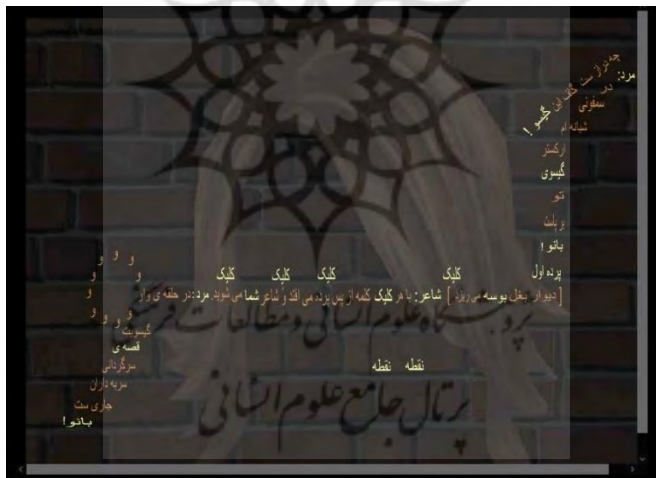 مرد:
چه دراز ست
گیسو !
در
سمفونی
شبانه ام
ارکستر
گیسوی
تو
بر پاست
بانو !
پرده اول
کلیک کلیک کلیک کلیک
[ دیوار بغل بوسه می ریزد ] شاعر: با هر کلیک کلمه از پس پرده می افتد و شاعر شما می شوید. مرد: در حلقه ی واو
و و و و و و و و و و
نقطه نقطه
گیسویت
قصه ی
سرگردانی
سربه داران
جاری ست
بانو !
پژوهشگاه علوم انسانی و مطالعات فرهنگی
پرتال جامع علوم انسانی